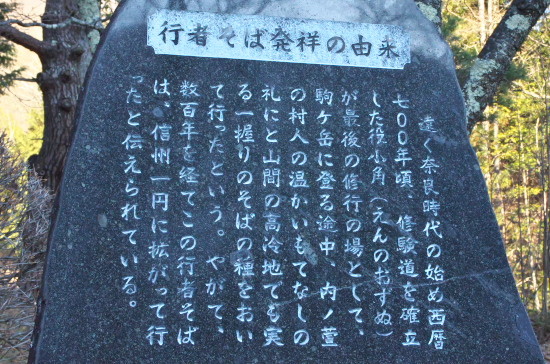 行者そば発祥の由来
遠く奈良時代の始め西暦
七〇〇年頃、修験道を確立
した役小角(えんのおずぬ)
が最後の修行の場として、
駒ケ岳に登る途中、内ノ萱
の村人の温かいもてなしの
礼にと山間の高冷地でも実
る一握りのそばの種をおい
て行ったという。やがて、
数百年を経てこの行者そば
は、信州一円に拡がって行
ったと伝えられている。